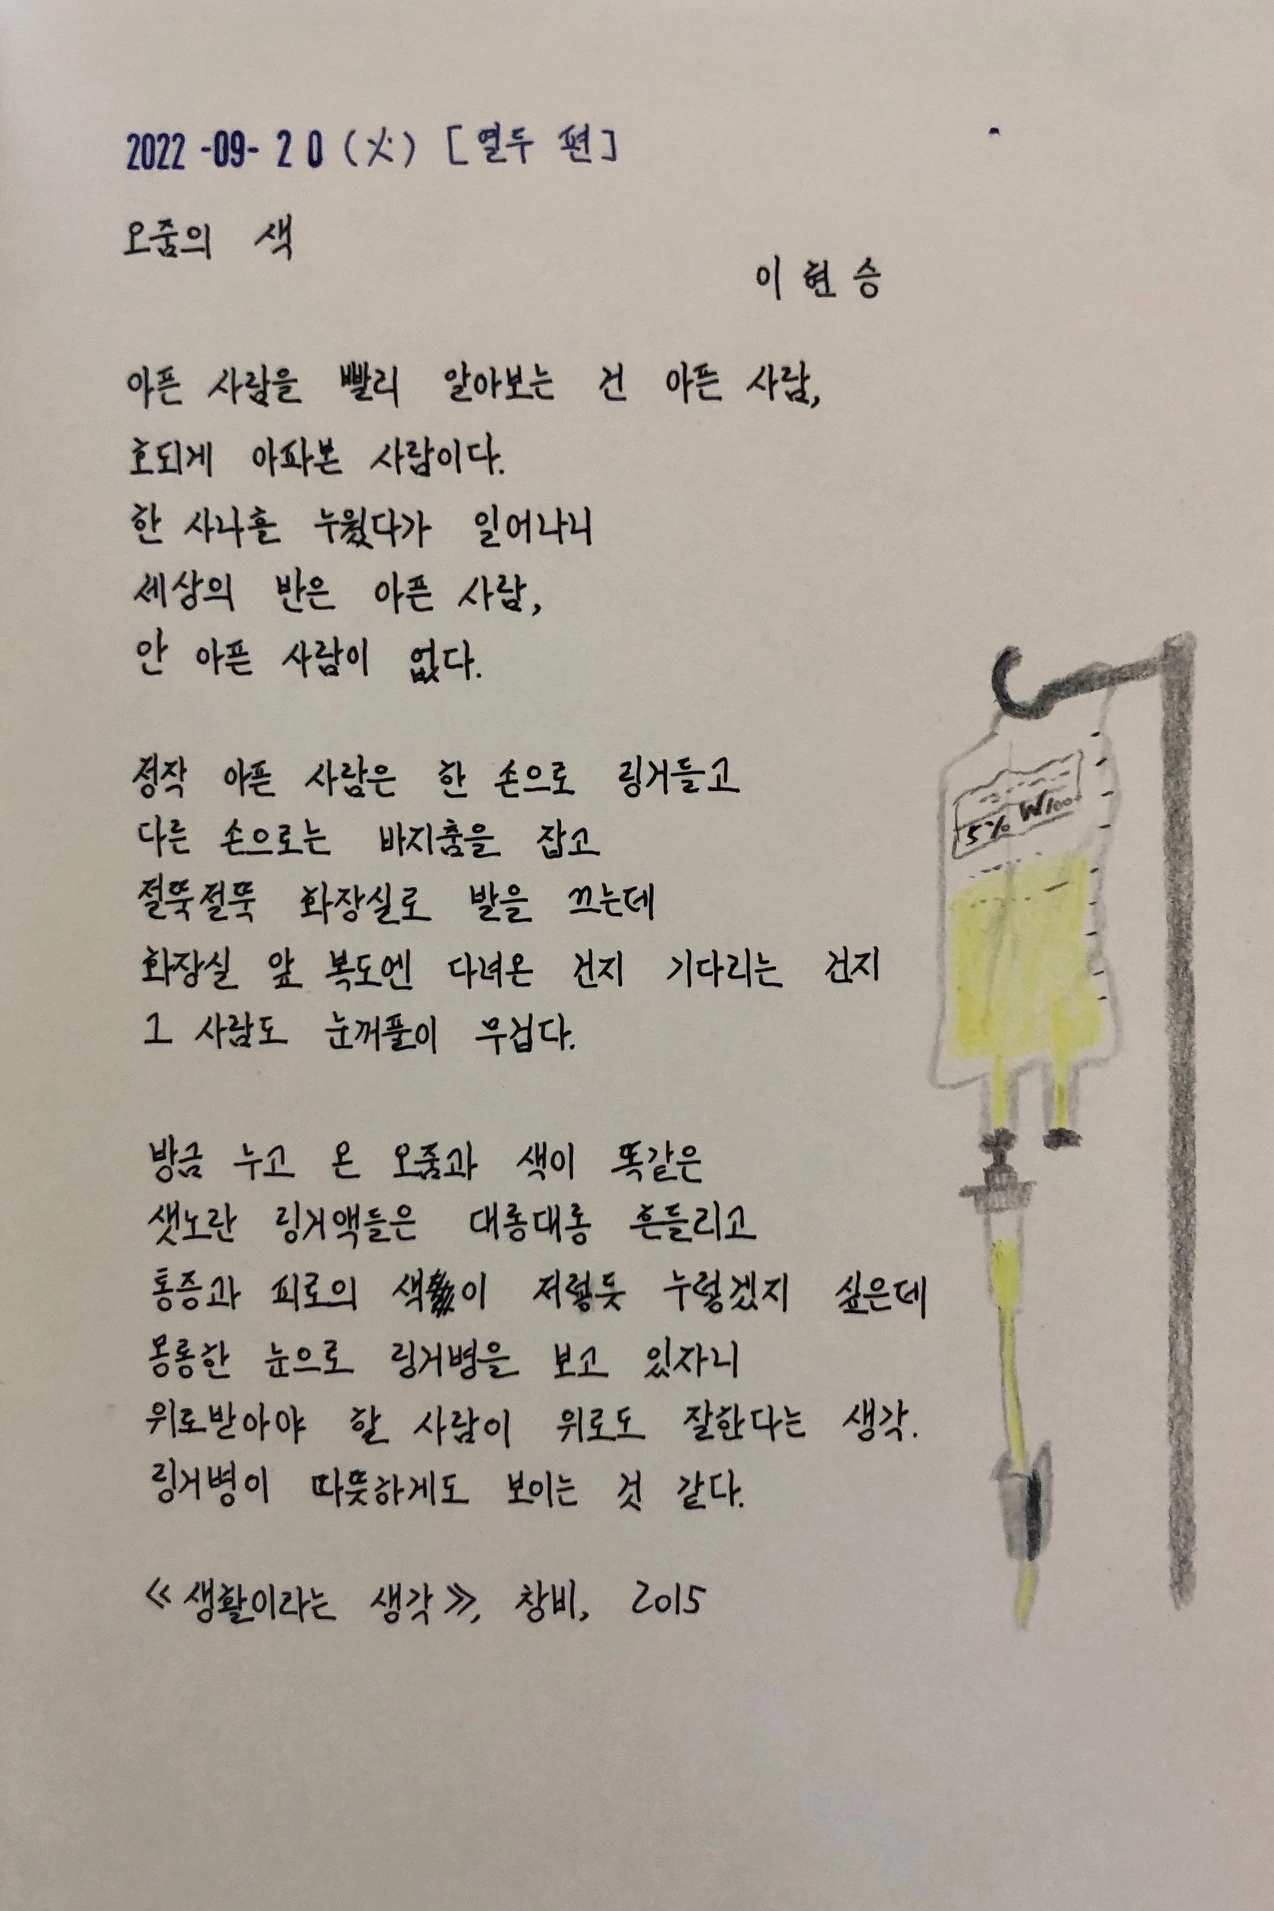 2022-09-20(火) [열두 편]
오줌의 색
이현승
아픈 사람을 빨리 알아보는 건 아픈 사람,
호되게 아파본 사람이다.
한 사나흘 누웠다가 일어나니
세상의 반은 아픈 사람,
안 아픈 사람이 없다.
정작 아픈 사람은 한 손으로 링거들고
다른 손으로는 바지춤을 잡고
절뚝절뚝 화장실로 발을 끄는데
화장실 앞 복도엔 다녀온 건지 기다리는 건지
그 사람도 눈꺼풀이 무겁다.
방금 누고 온 오줌과 색이 똑같은
샛노란 링거액들은 대롱대롱 흔들리고
통증과 피로의 색이 저렇듯 누렇겠지 싶은데
몽롱한 눈으로 링거병을 보고 있자니
위로받아야 할 사람이 위로도 잘한다는 생각.
링거병이 따뜻하게도 보이는 것 같다.
≪생활이라는 생각≫, 창비, 2015
5% W100